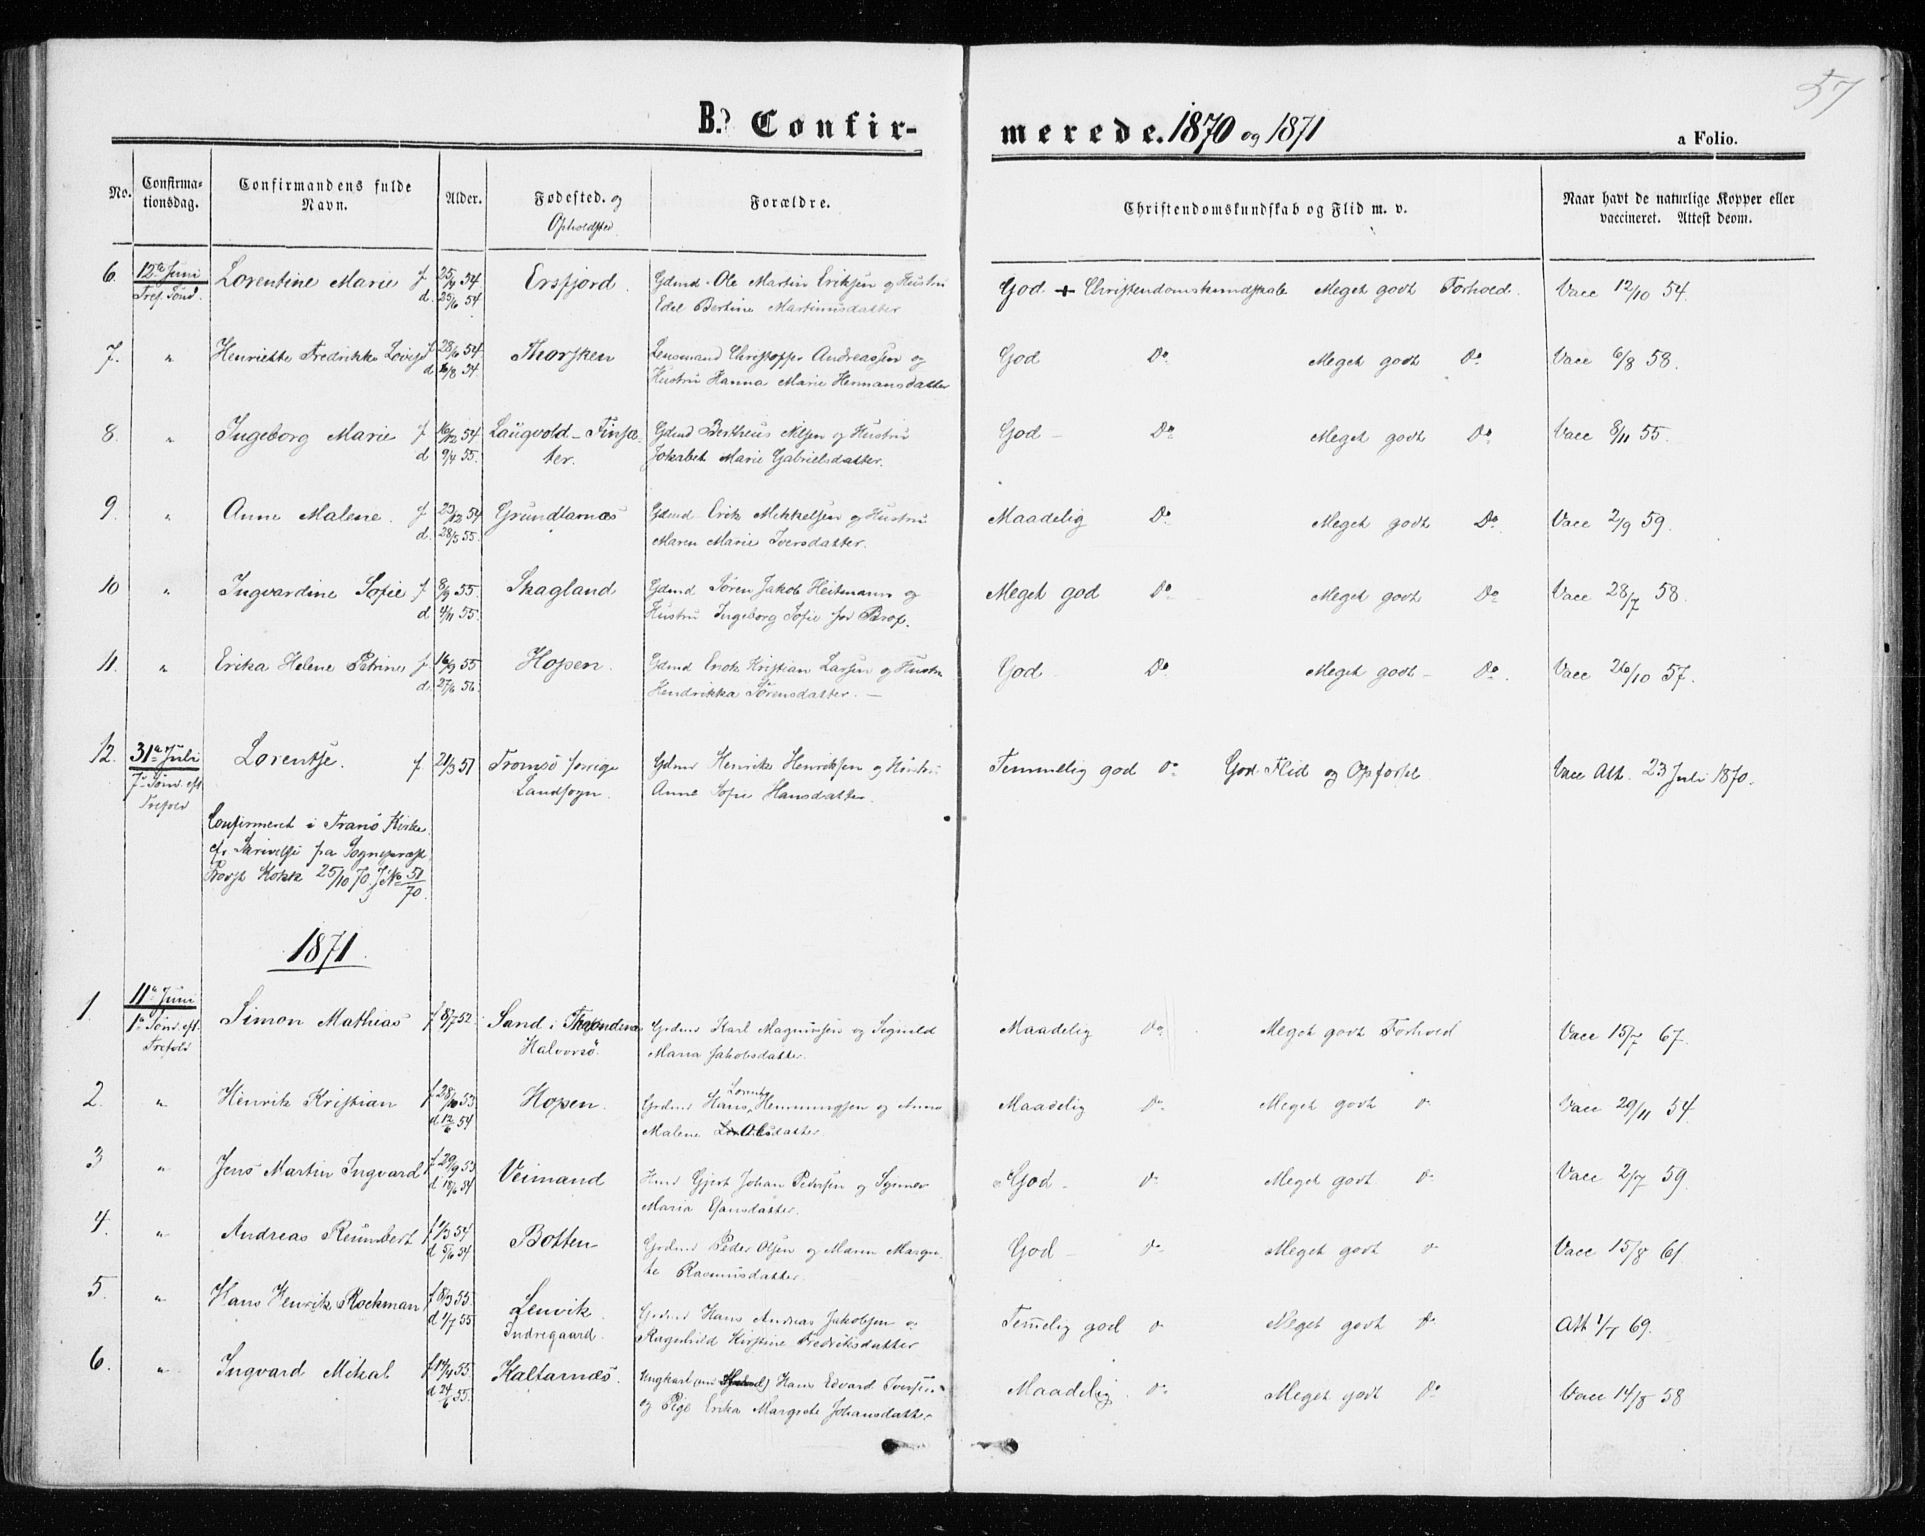 57
B. Confir-
merede. 1870 og 1871
a Folio.
No.
Confirma-
tionsdag.
Confirmandens fulde
Navn.
Alder.
Fødested. og
Opholdsted
Forældre.
Christendomskundskab og Flid m. v.
Naar havt de naturlige Kopper eller
vaccineret. Attest derom.
6. 12te Juni Lorentine Marie f 25/4 54 Ersfjord. Gdmd. Ole Martin Eriksen og Hustru God + Christendomskundskab Meget godt Forhold. Vacc 12/10 54.
Tref. Sönd. d. 25/6 54 Edel Bertine Martinusdatter
7. " Henriette Fredrikke Lovise f 28/6 54 Thorsken Lensmand Christoffer Andreassen og God Do Meget godt Do Vacc 6/8 58.
d. 16/8 54 Hustru Hanna Marie Hermansdatter
8. " Ingeborg Marie f 16/12 54 Laügvold - Finsæ- Gdmd Bertheus Nilsen og Hustru God - Do Meget godt Do Vacc 8/11 55.
d 9/4 55. ter. Jokabet Marie Gabrielsdatter.
9. " Anne Malene. f 23/12 54 Grundtarnæs Gdmd Erik Mikkelsen og Hustru Maadelig Do Meget godt Do Vacc 2/9 59.
d. 28/5 55. Maren Marie Iversdatter.
10 " Ingvardine Sofie f 8/9 55. Skagland Gdmd Sören Jakob Heitmann og Meget god Do Meget godt Do Vacc 28/7 58.
d 4/11 55. Hustru Ingeborg Sofie för Brox.
11. " Erika Helene Petrine f 16/9 55 Hopen. Gdmd Enok Kristian Larsen og Hustru God Do Meget godt - Do. Vacc 26/10 57.
d. 27/6 56. Hendrikka Sörensdatter. -
12. 31te Juli Lorentse. f 21/3 51 Tromsö forrige Gdmd Henrik Henriksen og Hustru Temmelig god Do God Flid og Opförsel Vacc Att. 23 Juli 1870.
7de Sönd. eft. Landsogn. Anne Sofie Hansdatter.
Trefold
Confirmeret i Tranö Kirke
ef. Skrivelse fra Sognepræst
Provst Kokk 25/10 70 J No 51/70.
1871.
1. 11te Juni Simon Mathias f 8/7 52. Sand i Grdmd Karl Magnusen og Signild Maadelig Do Meget godt Forhold Vacc 15/7 67.
1te Sönd. eft. Halvorsö. Maria Jakobsdatter.
Trefold
Lorents
2. " Henrik Kristian f 28/10 53 Hopen. Grdmd Hans Hemmingsen og Anne Maadelig Do Meget godt Do Vacc 29/11 54
d 12/6 54 Malene Olsdatter.
3 " Jens Martin Ingvard f 29/9 53 Veimand Hmd Gjert Johan Pedersen og God - Do Meget godt Do Vacc 2/7 59.
d 18/6 54 Maria Esansdatter.
4. " Andreas Reinbert f 1/3 54 Botten Grdmd Peder Olsen og Maren Margre- God - Do Meget godt Do Vacc 15/8 61.
d 5/6 54 te Rasmusdatter.
5. " Hans Henrik Rockman f 8/3 55. Lenvik Grdmd Hans Andreas Jakobsen og Temelig god Do Meget godt Do Att 1/7 69.
d 1/7 55 Indregaard. Ragnhild Kirstine Fredriksdatter
6. " Ingvard Mikal f 14/4 55. Kaltarnæs. Ungkarl Hans Edvard Iversen Maadelig. Do Meget godt Do Vacc 14/8 58
d 24/6 55. og Pige Erika Margrete Johansdatter